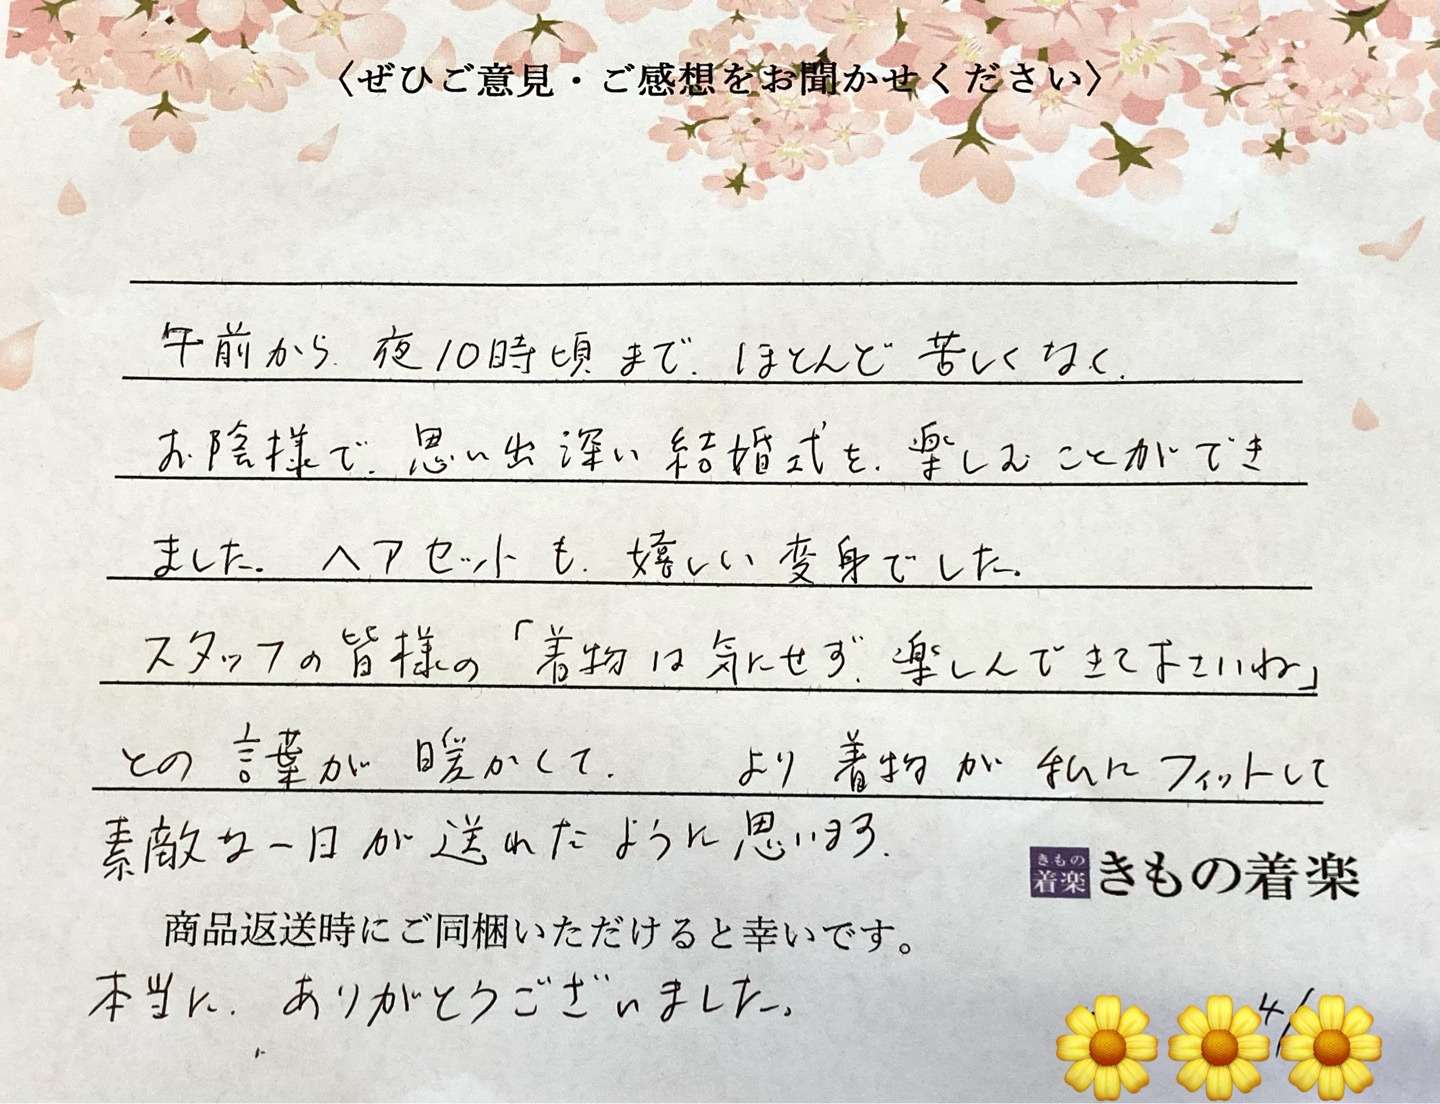 〈ぜひご意見・ご感想をお聞かせください〉
午前から、夜10時頃まで、ほとんど苦しくなく、
お陰様で、思い出深い結婚式を、楽しむことができ
ました。ヘアセットも、嬉しい変身でした。
スタッフの皆様の「着物は気にせず、楽しんできて下さいね」
との言葉が暖かくて、より着物が私にフィットして
素敵な一日が送れたように思います。
きもの
着楽
きもの着楽
商品返送時にご同梱いただけると幸いです。
本当に、ありがとうございました。
4/